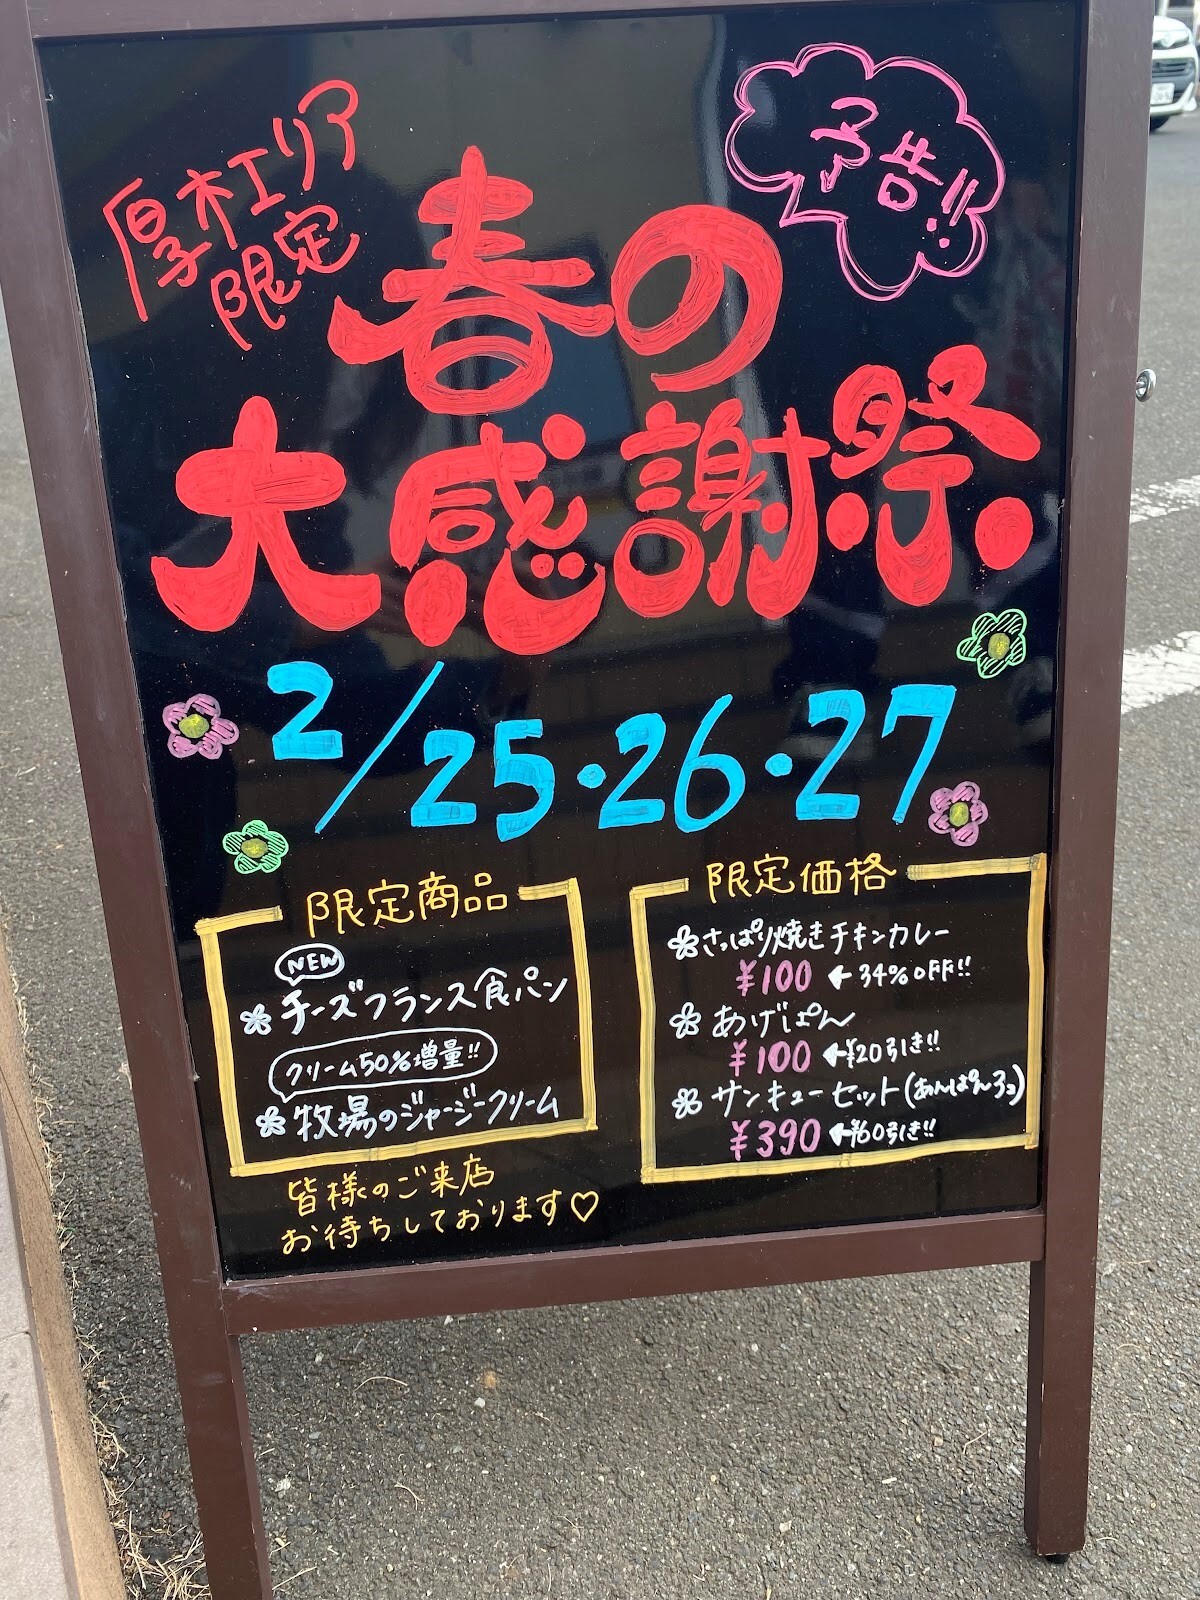 厚木エリア
限定
予告!!
春の
大感謝祭
2/25・26・27
限定商品
NEW
チーズフランス食パン
クリーム50%増量!!
牧場のジャージークリーム
限定価格
さっぱり焼きチキンカレー
¥100 ←34%OFF!!
あげぱん
¥100 ←¥20引き!!
サンキューセット(あんぱん3コ)
¥390 ←¥60引き!!
皆様のご来店
お待ちしております♡